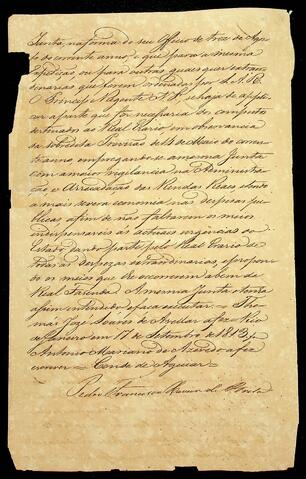 Junta, na forma do seu Officio de trez de Agos-
to do corrente anno, e que para a mesma
Expedição ou para outras quaesquer extraor-
dinarias que forem ordenadas por S. A. R.
O Principe Regente N. S., se haja de appli-
car a parte que for necessaria do computo
destinado ao Real Erario, em observancia
da sobredita Provisão de 14 de Maio do corren-
te anno empregando-se a mesma Junta
com a maior vigilancia na Administra-
ção e Arrecadação das Rendas Reaes e
a mais severa economia nas despezas pu-
blicas afim de não faltarem os meios
indispensaveis ás actuaes urgencias do
Estado, dando parte pelo Real Erario de
todas as despezas extraordinarias, e propon-
do os meios que lhe occorrerem a bem da
Real Fazenda. A mesma Junta o tenha
assim entendido e faça executar = Tho-
maz José Soares de Avellar a fez Rio
de Janeiro em 17 de Setembro de 1813 =
Antonio Mariano de Azevedo a fez
escrever = Conde de Aguiar =
Pedro Francisco Xavier de